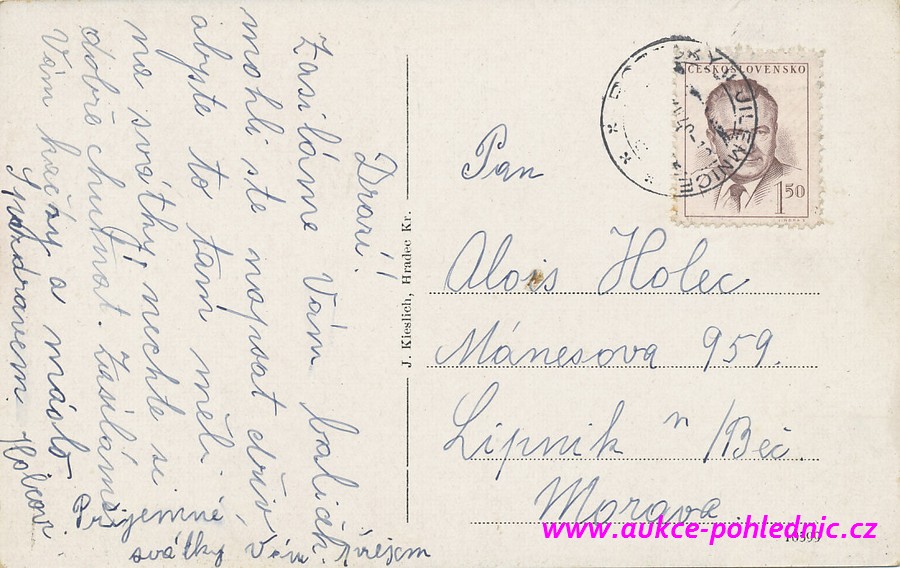 Drazí!
Zasíláme Vám balíček.
mohli ste napsat dřív,
abyste to tam měli
na svátky, nechte si
dobře chutnat. Zasíláme
Vám kačky a máslo
S pozdravem Holcovi
Příjemné
svátky Vám
J. Kieslich, Hradec Kr.
ČESKOSLOVENSKO
1.50
JILEMNICE
Pan
Alois Holec
Mánesova 959.
Lipník n/Beč.
Morava
www.aukce-pohlednic.cz